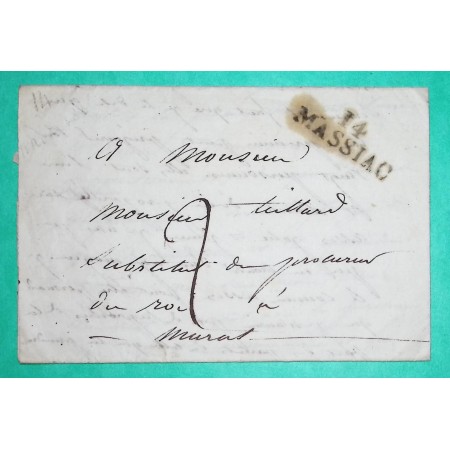 14
MASSIAC
A Monsieur
Monsieur teillard
substitut du procureur
du roi à
Murat
2